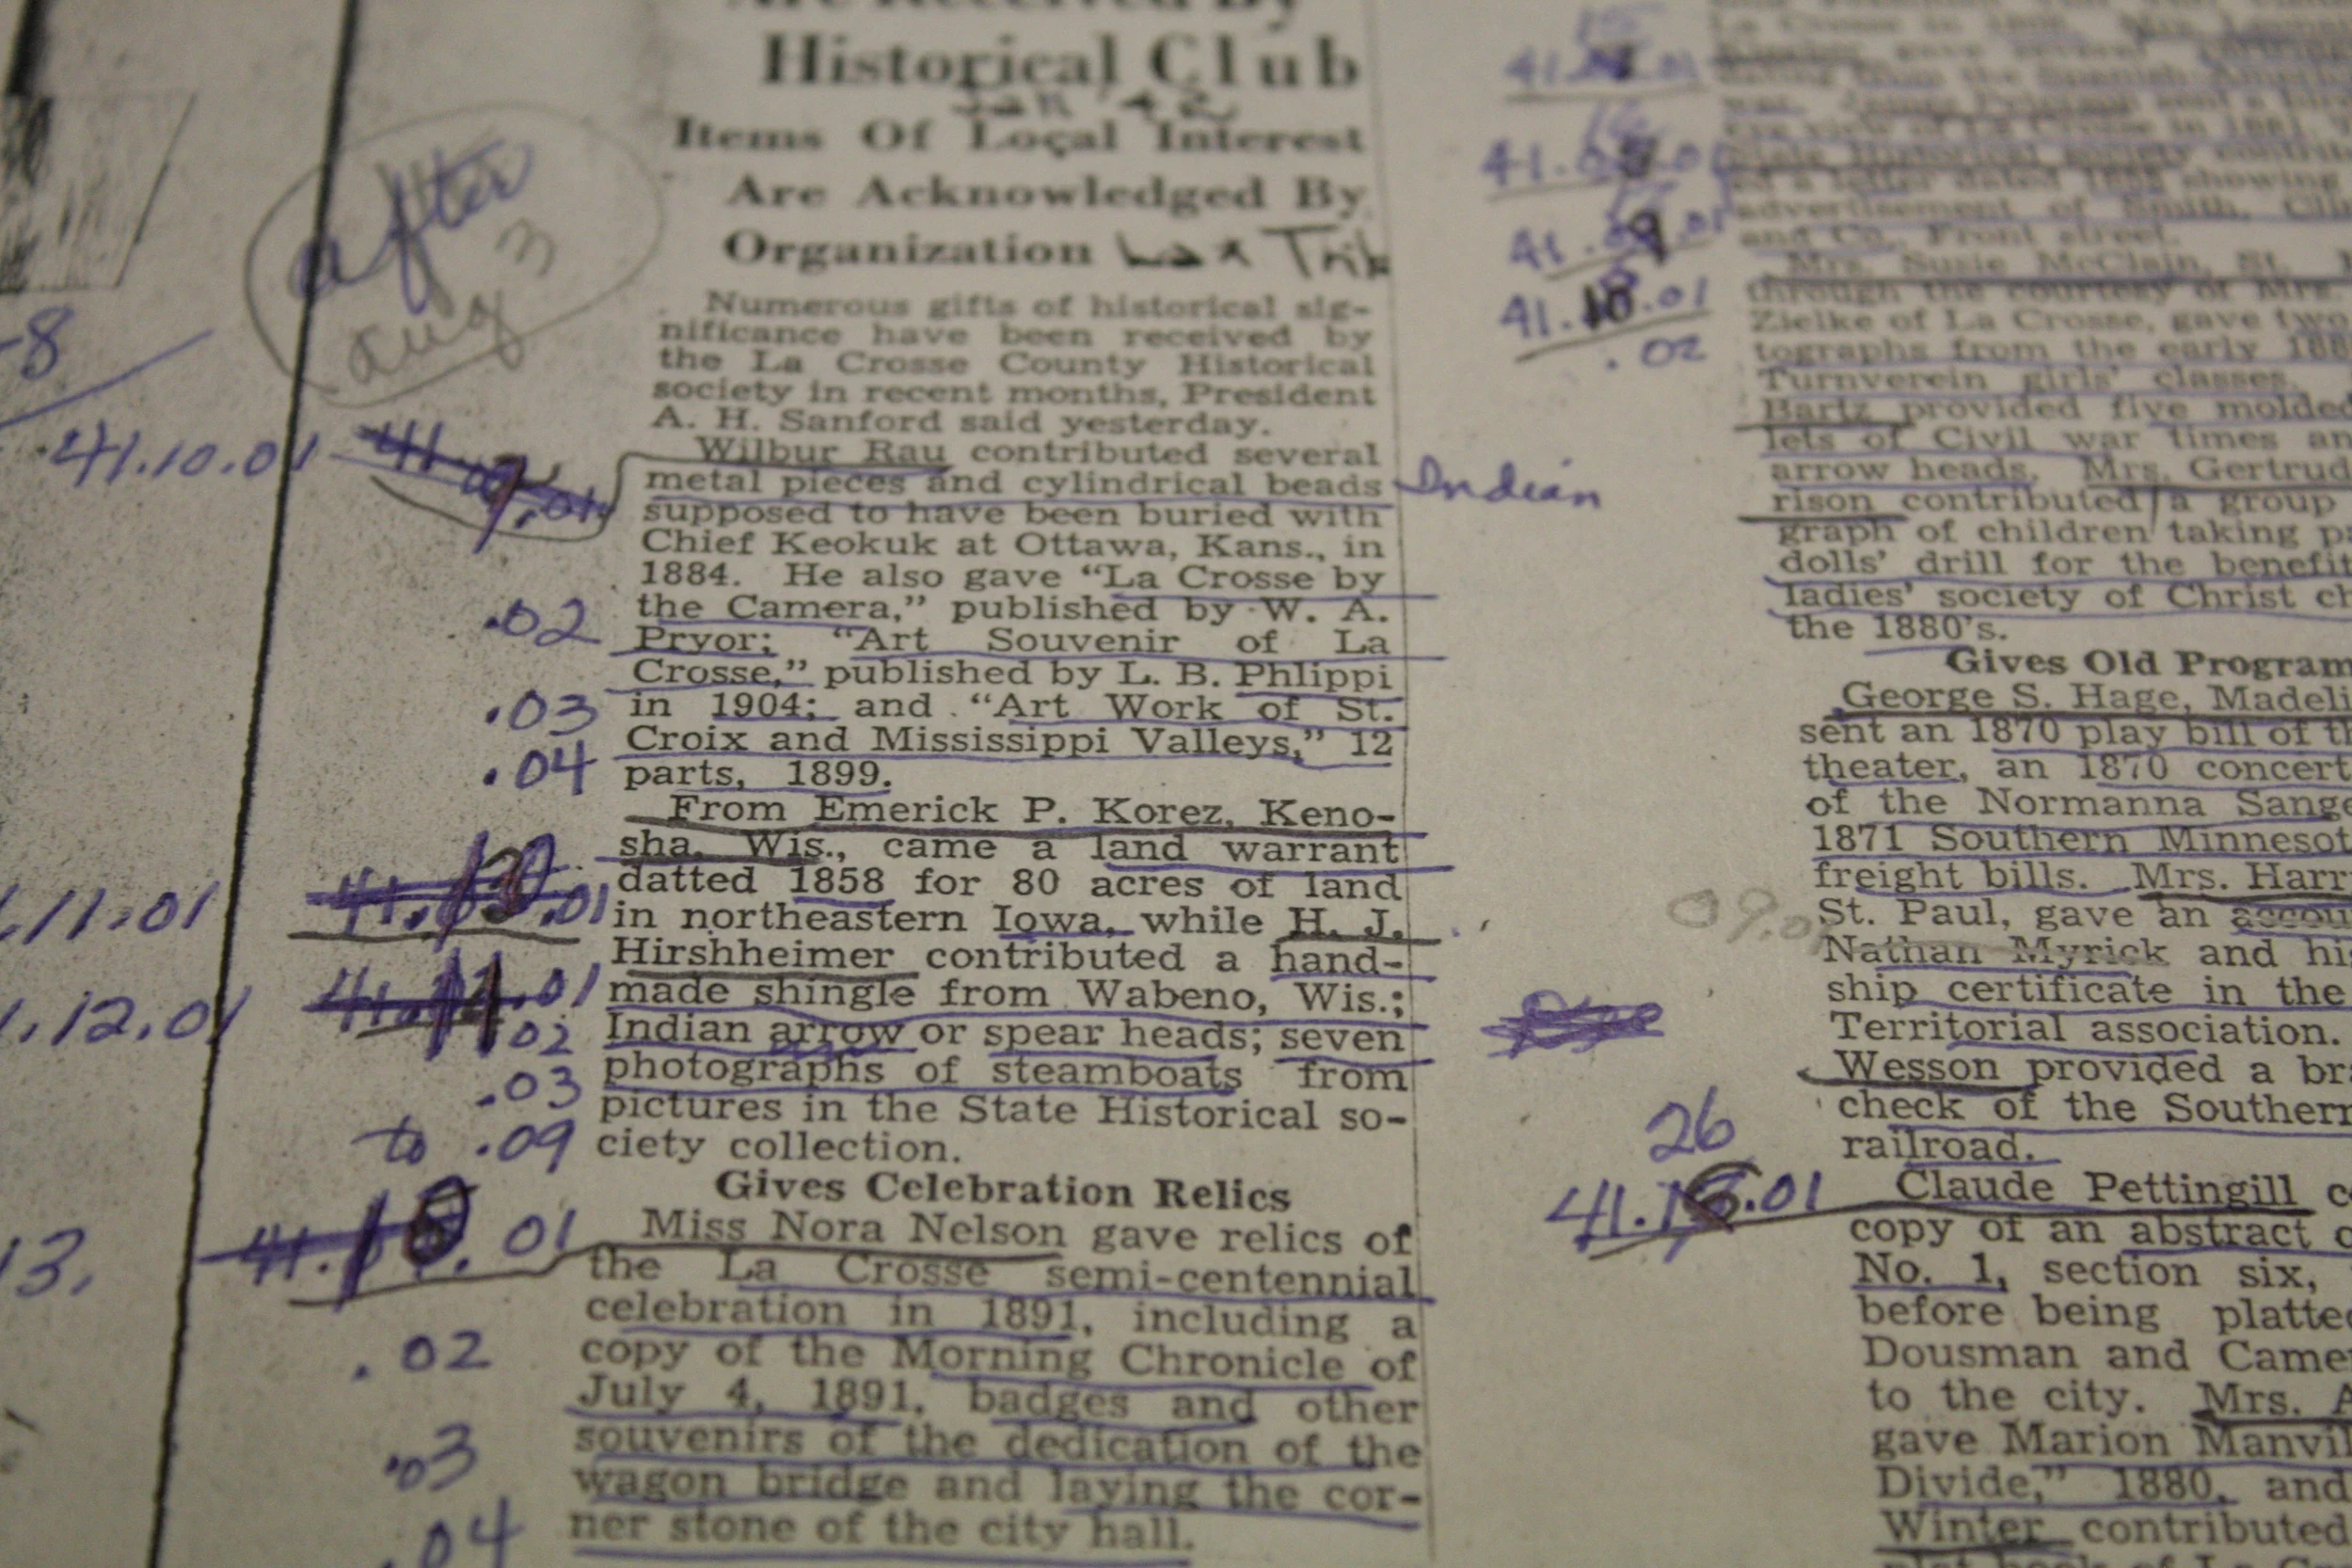 Are Received By
Historical Club
Jan '42
Items Of Local Interest
Are Acknowledged By
Organization Lax Trib
after
aug 3
Numerous gifts of historical sig-
nificance have been received by
the La Crosse County Historical
society in recent months, President
A. H. Sanford said yesterday.
Wilbur Rau contributed several
metal pieces and cylindrical beads Indian
supposed to have been buried with
Chief Keokuk at Ottawa, Kans., in
1884. He also gave "La Crosse by
the Camera," published by W. A.
Pryor; "Art Souvenir of La
Crosse," published by L. B. Phlippi
in 1904; and "Art Work of St.
Croix and Mississippi Valleys," 12
parts, 1899.
From Emerick P. Korez, Keno-
sha, Wis., came a land warrant
datted 1858 for 80 acres of land
in northeastern Iowa, while H. J.
Hirshheimer contributed a hand-
made shingle from Wabeno, Wis.;
Indian arrow or spear heads; seven
photographs of steamboats from
pictures in the State Historical so-
ciety collection.
Gives Celebration Relics
Miss Nora Nelson gave relics of
the La Crosse semi-centennial
celebration in 1891, including a
copy of the Morning Chronicle of
July 4, 1891, badges and other
souvenirs of the dedication of the
wagon bridge and laying the cor-
ner stone of the city hall.
-8
41.10.01
.02
.03
.04
.11.01
.12.01
.02
.03
to .09
13.
.01
.02
.03
.04
.02
09.01
26
41.1 .01
war.
advertisement of Smith,
and Co., Front street.
Mrs. Susie McClain, St.
through the courtesy of Mrs.
Zielke of La Crosse, gave two
tographs from the early 188
Turnverein girls' classes.
Bartz provided five molded
lets of Civil war times an
arrow heads. Mrs. Gertrud
rison contributed a group
graph of children taking pa
dolls' drill for the benefit
ladies' society of Christ ch
the 1880's.
Gives Old Program
George S. Hage, Madeli
sent an 1870 play bill of th
theater, an 1870 concert
of the Normanna Sange
1871 Southern Minnesot
freight bills. Mrs. Harr
St. Paul, gave an accou
Nathan Myrick and hi
ship certificate in the
Territorial association.
Wesson provided a br
check of the Southern
railroad.
Claude Pettingill c
copy of an abstract o
No. 1, section six,
before being platte
Dousman and Came
to the city. Mrs. A
gave Marion Manvil
Divide," 1880, and
Winter contributed